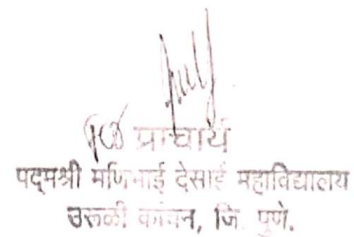 प्राचार्य
पद्मश्री मणिभाई देसाई महाविद्यालय
उरुळी कांचन, जि. पुणे.